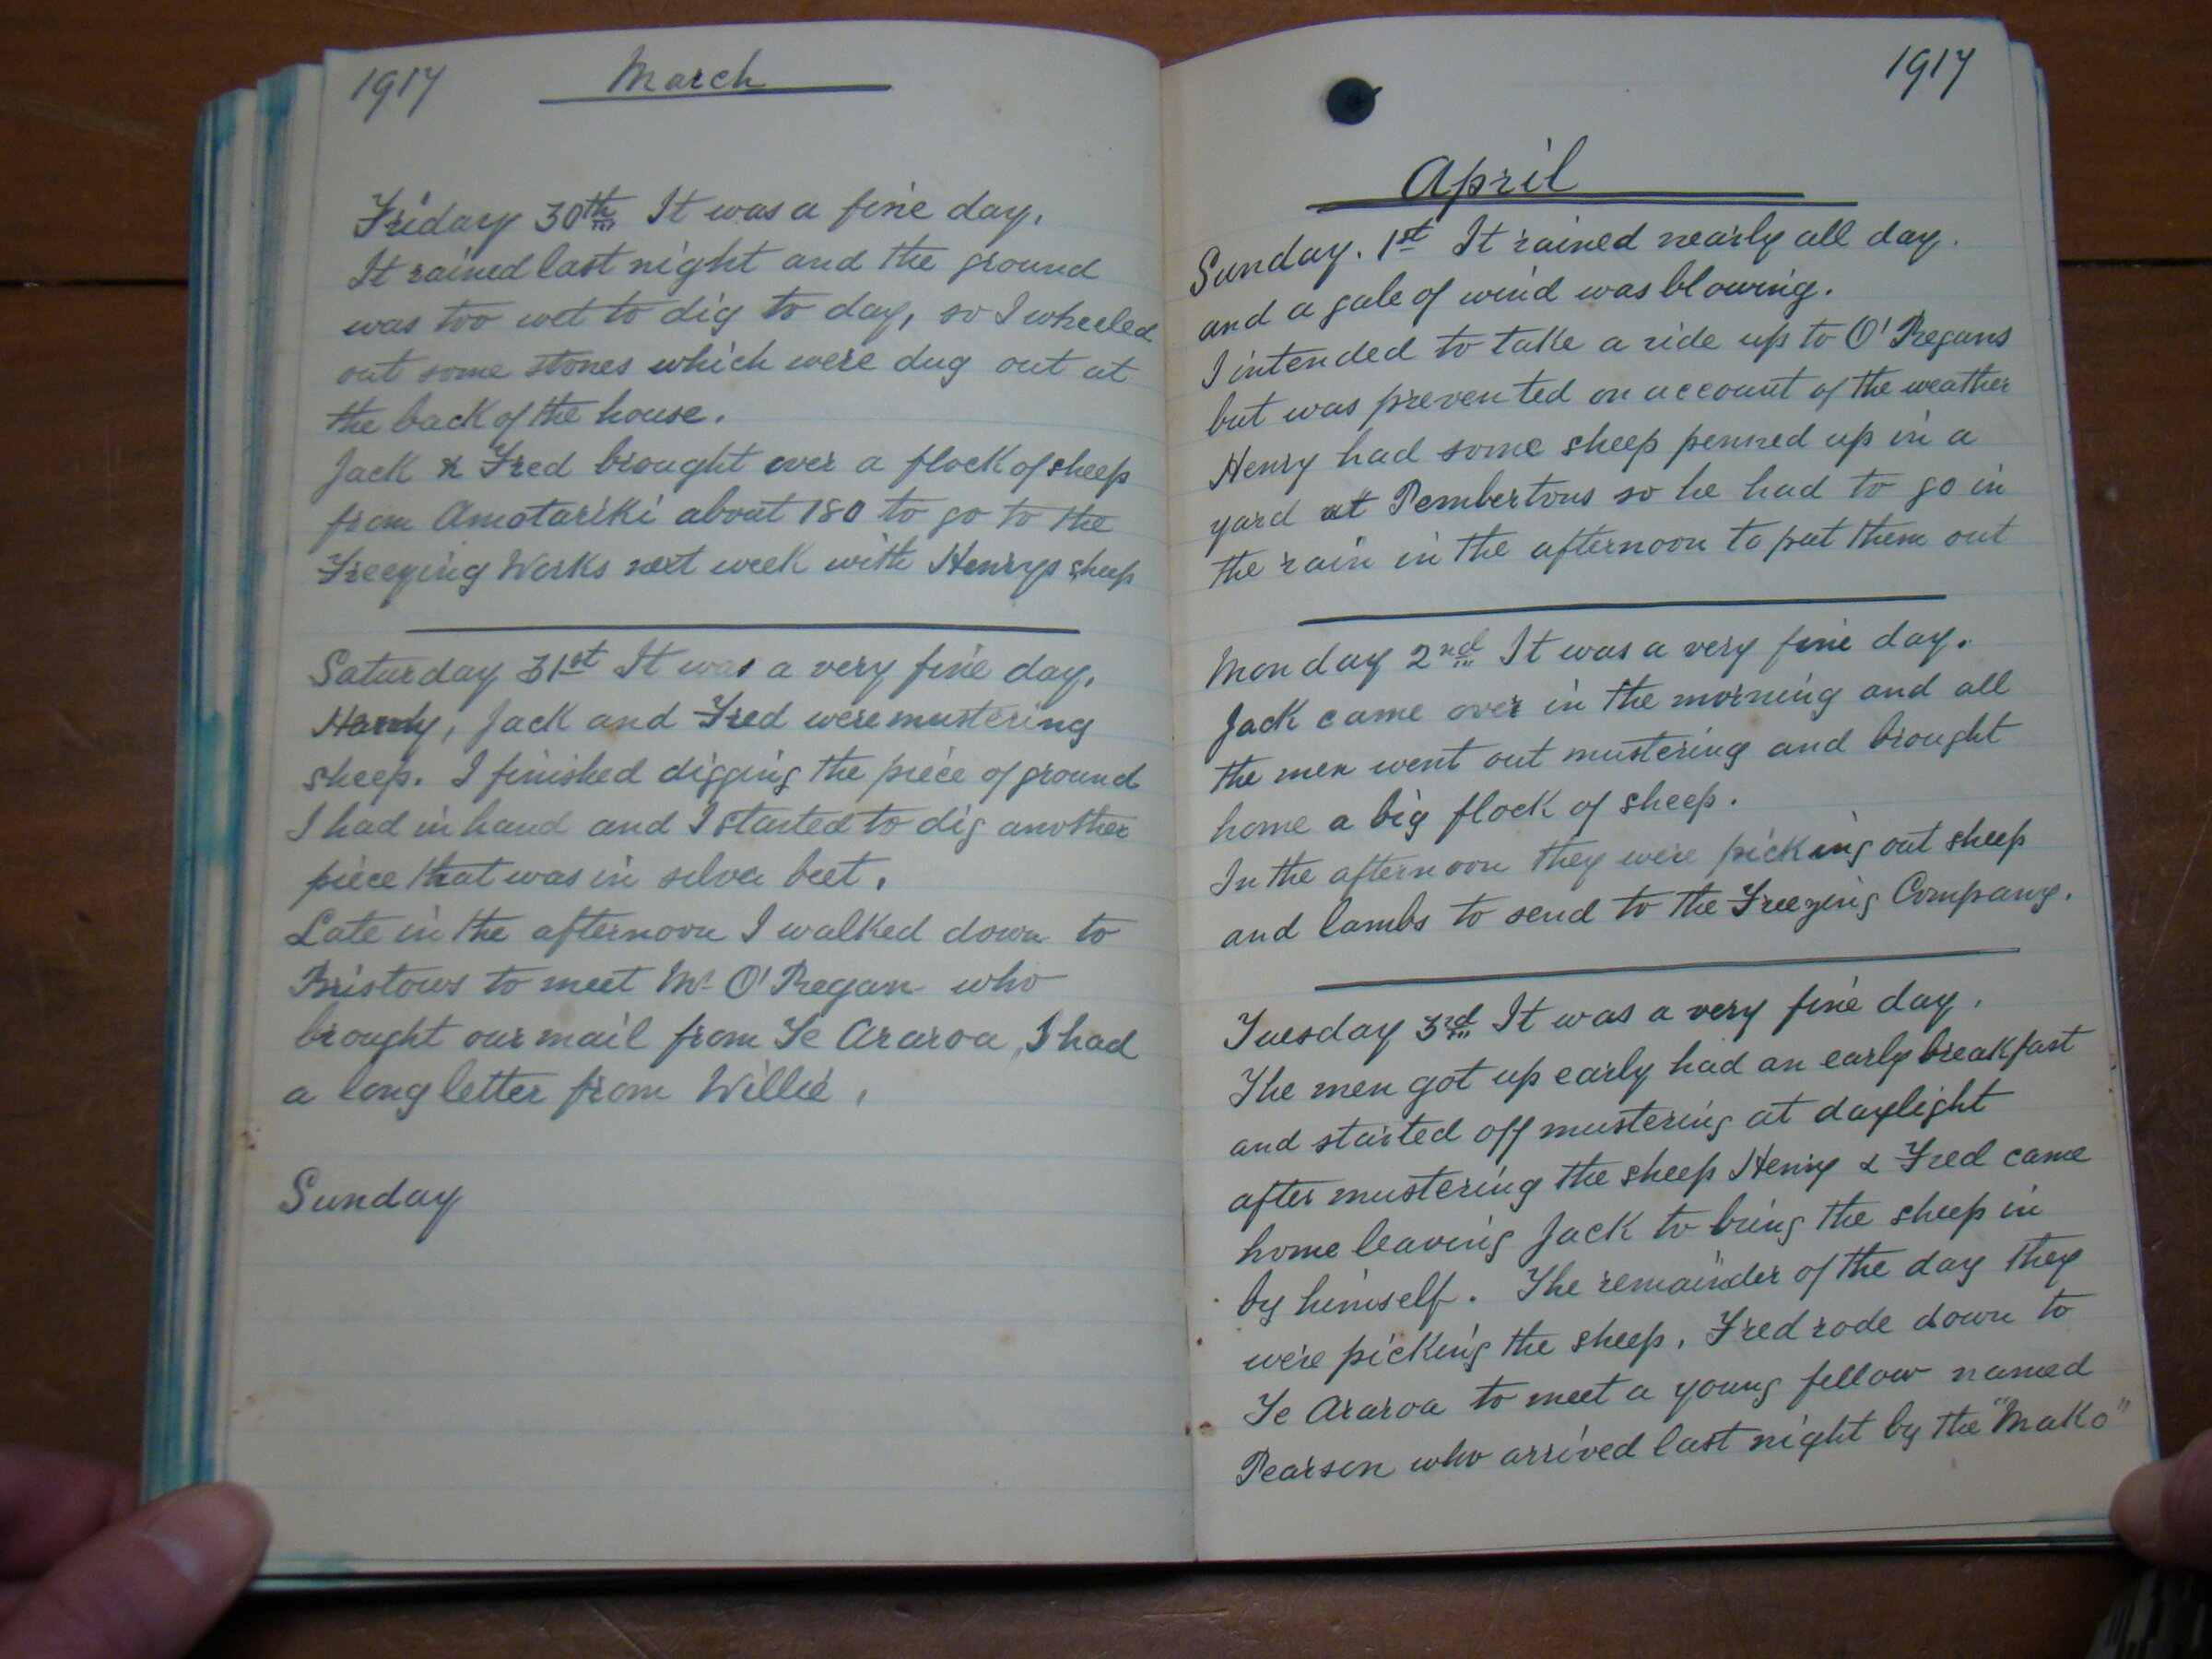 1917 March
Friday 30th It was a fine day.
It rained last night and the ground
was too wet to dig to day, so I wheeled
out some stones which were dug out at
the back of the house.
Jack & Fred brought over a flock of sheep
from Amotariki about 180 to go to the
Freezing Works next week with Henrys sheep
Saturday 31st It was a very fine day.
Jack and Fred were mustering
sheep. I finished digging the piece of ground
I had in hand and I started to dig another
piece that was in silver beet.
Late in the afternoon I walked down to
Bristows to meet Mr O'Regan who
brought our mail from Te Araroa, I had
a long letter from Willie.
Sunday
1917
April
Sunday. 1st It rained nearly all day.
and a gale of wind was blowing.
I intended to take a ride up to O'Regans
but was prevented on account of the weather
Henry had some sheep penned up in a
yard at Pembertons so he had to go in
the rain in the afternoon to put them out
Monday 2nd It was a very fine day.
Jack came over in the morning and all
the men went out mustering and brought
home a big flock of sheep.
In the afternoon they were picking out sheep
and lambs to send to the Freezing Company.
Tuesday 3rd It was a very fine day.
The men got up early had an early breakfast
and started off mustering at daylight
after mustering the sheep Henry & Fred came
home leaving Jack to bring the sheep in
by himself. The remainder of the day they
were picking the sheep. Fred rode down to
Te Araroa to meet a young fellow named
Pearson who arrived last night by the "Mako"